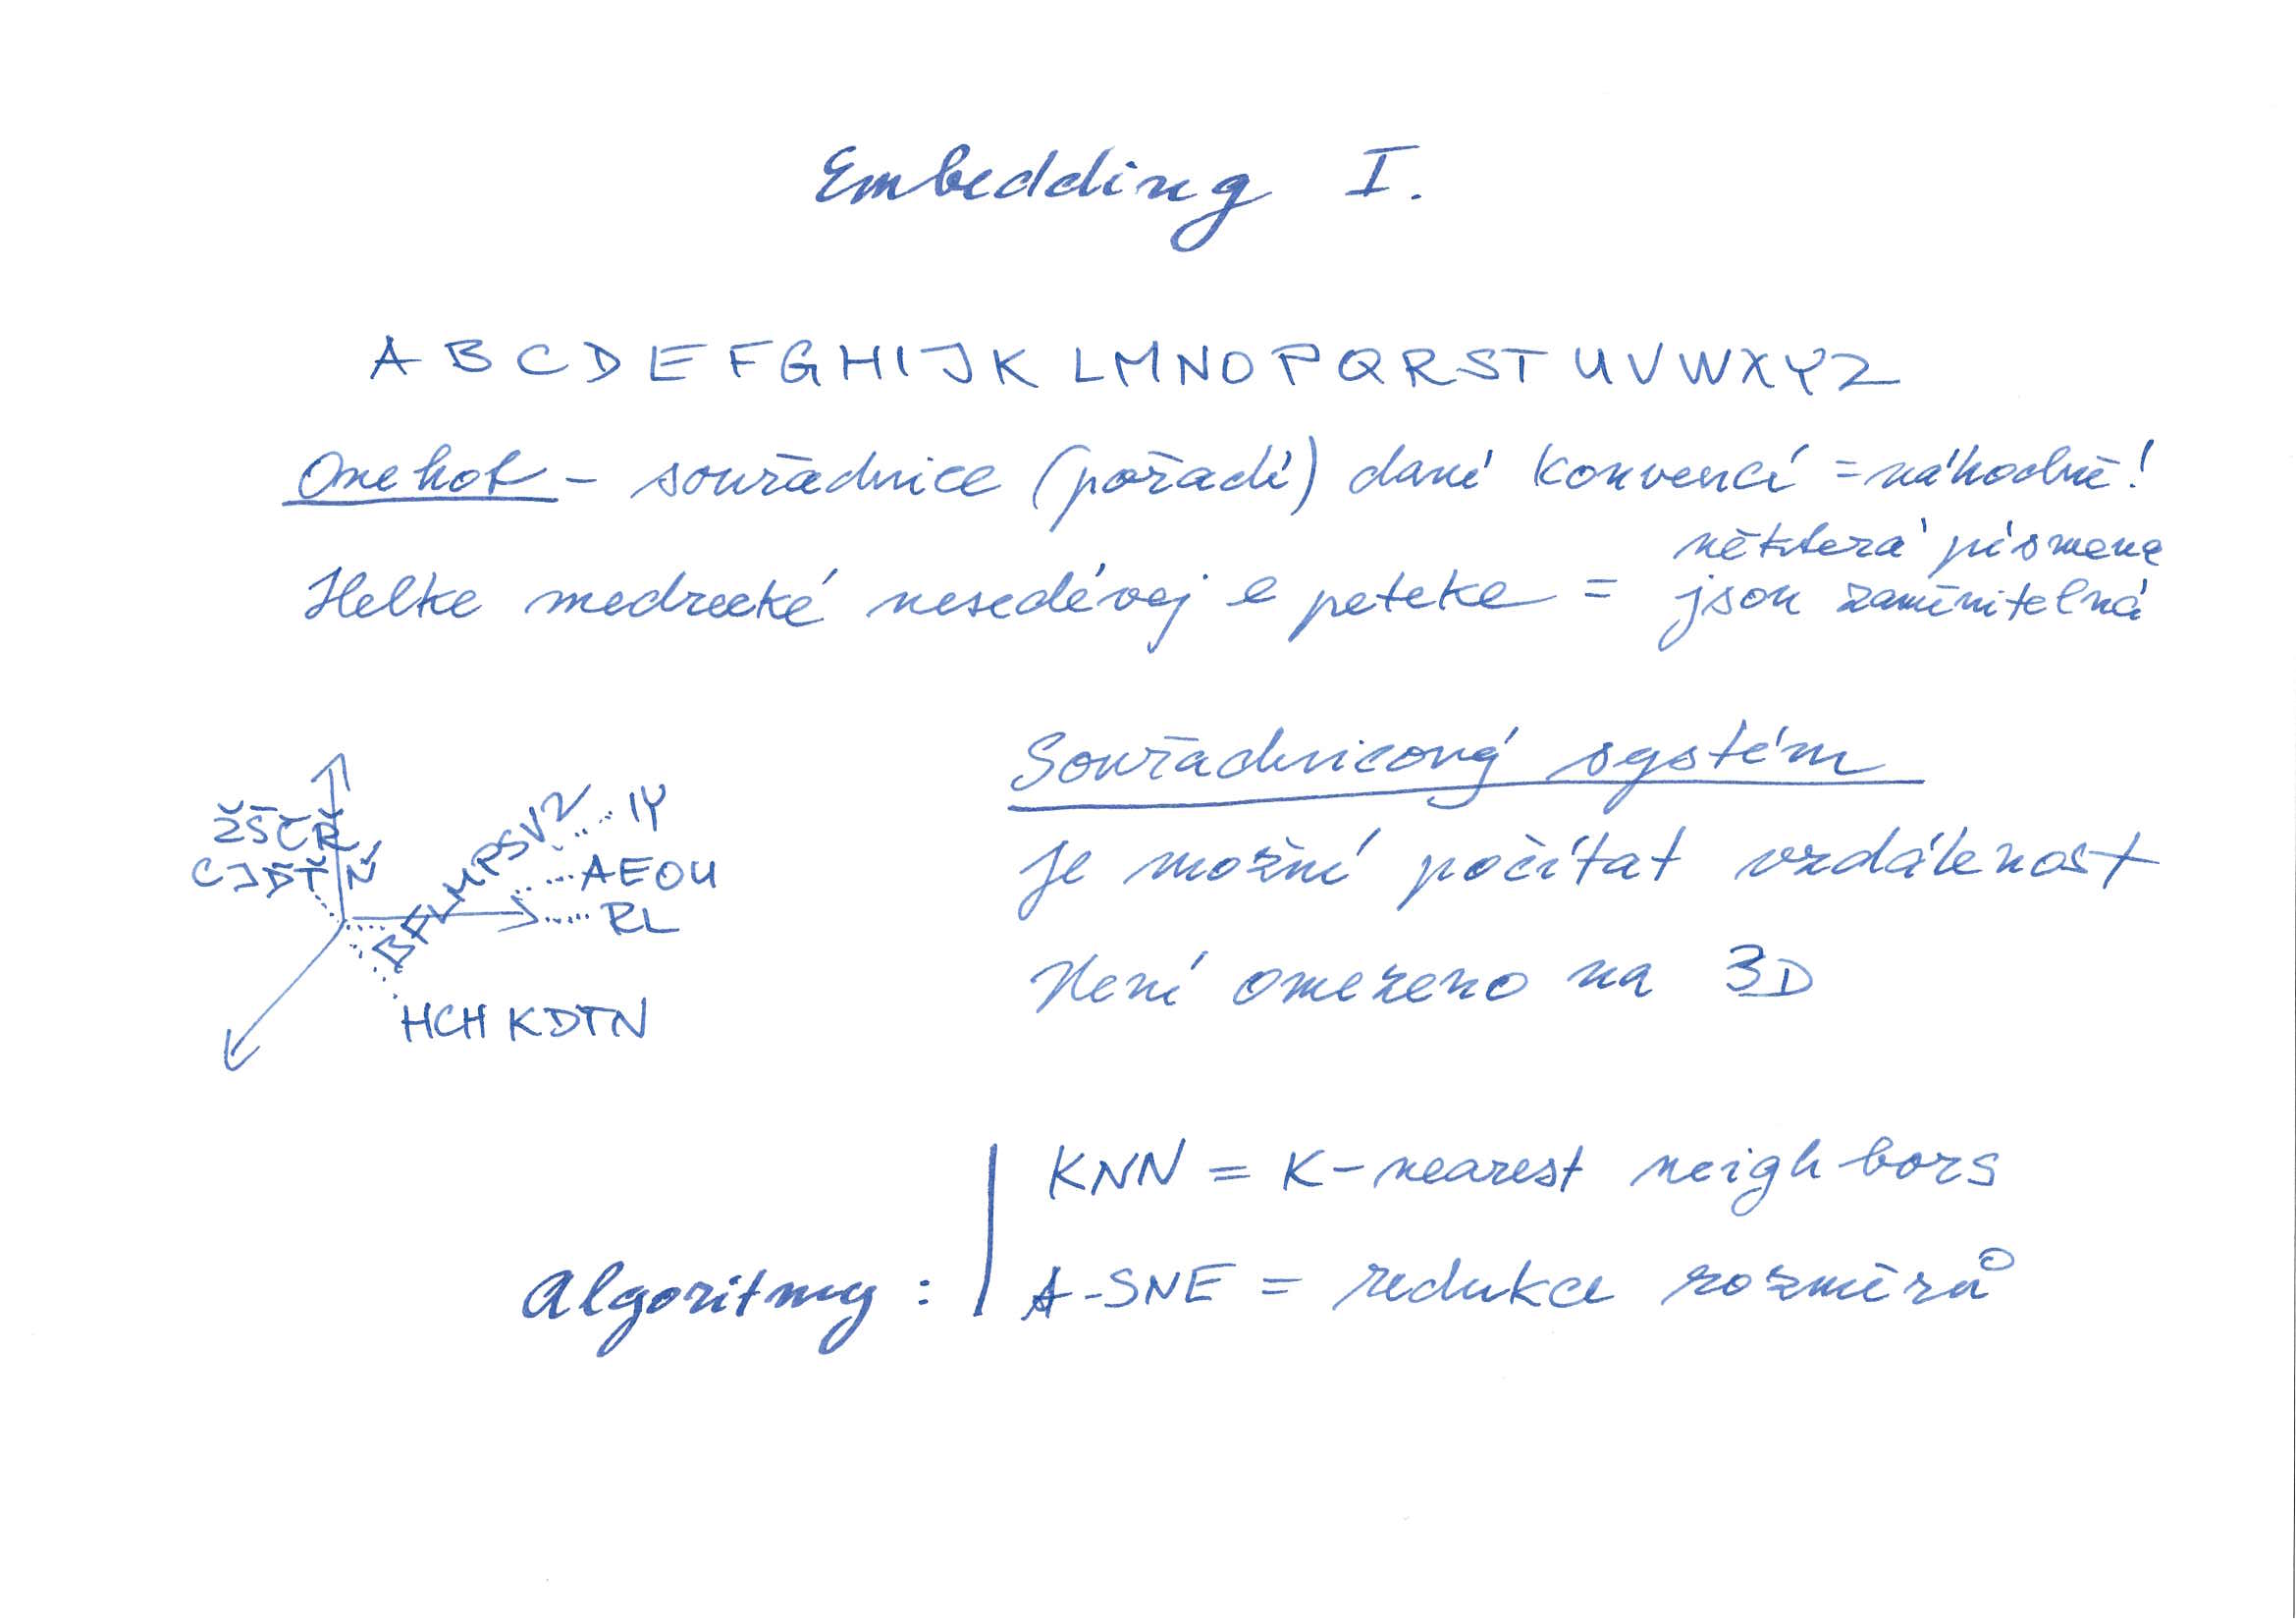 Embedding I.
A B C D E F G H I J K L M N O P Q R S T U V W X Y Z
One hot - souřadnice (pořadí) dané konvencí = náhodně!
některá písmena
Helke medrecké nesedévej e peteke = jsou zaměnitelná
Souřadnicový systém
ŽŠČŘ
IY
CJĎŤŇ
AEOU
je možné počítat vzdálenost
RL
Není omezeno na 3D
HCH KDTN
KNN = K-nearest neighbors
Algoritmy :
-SNE = redukce rozměrů